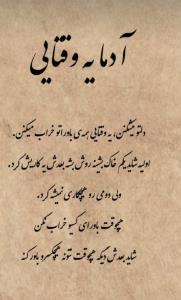 آدما یه وقتایی
دلتو میشکنن، یه وقتایی همه ی باوراتو خراب میکنن.
اولیه شاید یکم خاک بشینه روش بشه بعدش یه کاریش کرد.
ولی دومی رو هیچکاری نمیشه کرد.
هیچوقت باورای کسیو خراب نکن
شاید بعدش دیگه هیچوقت نتونه هیچکسرو باور کنه